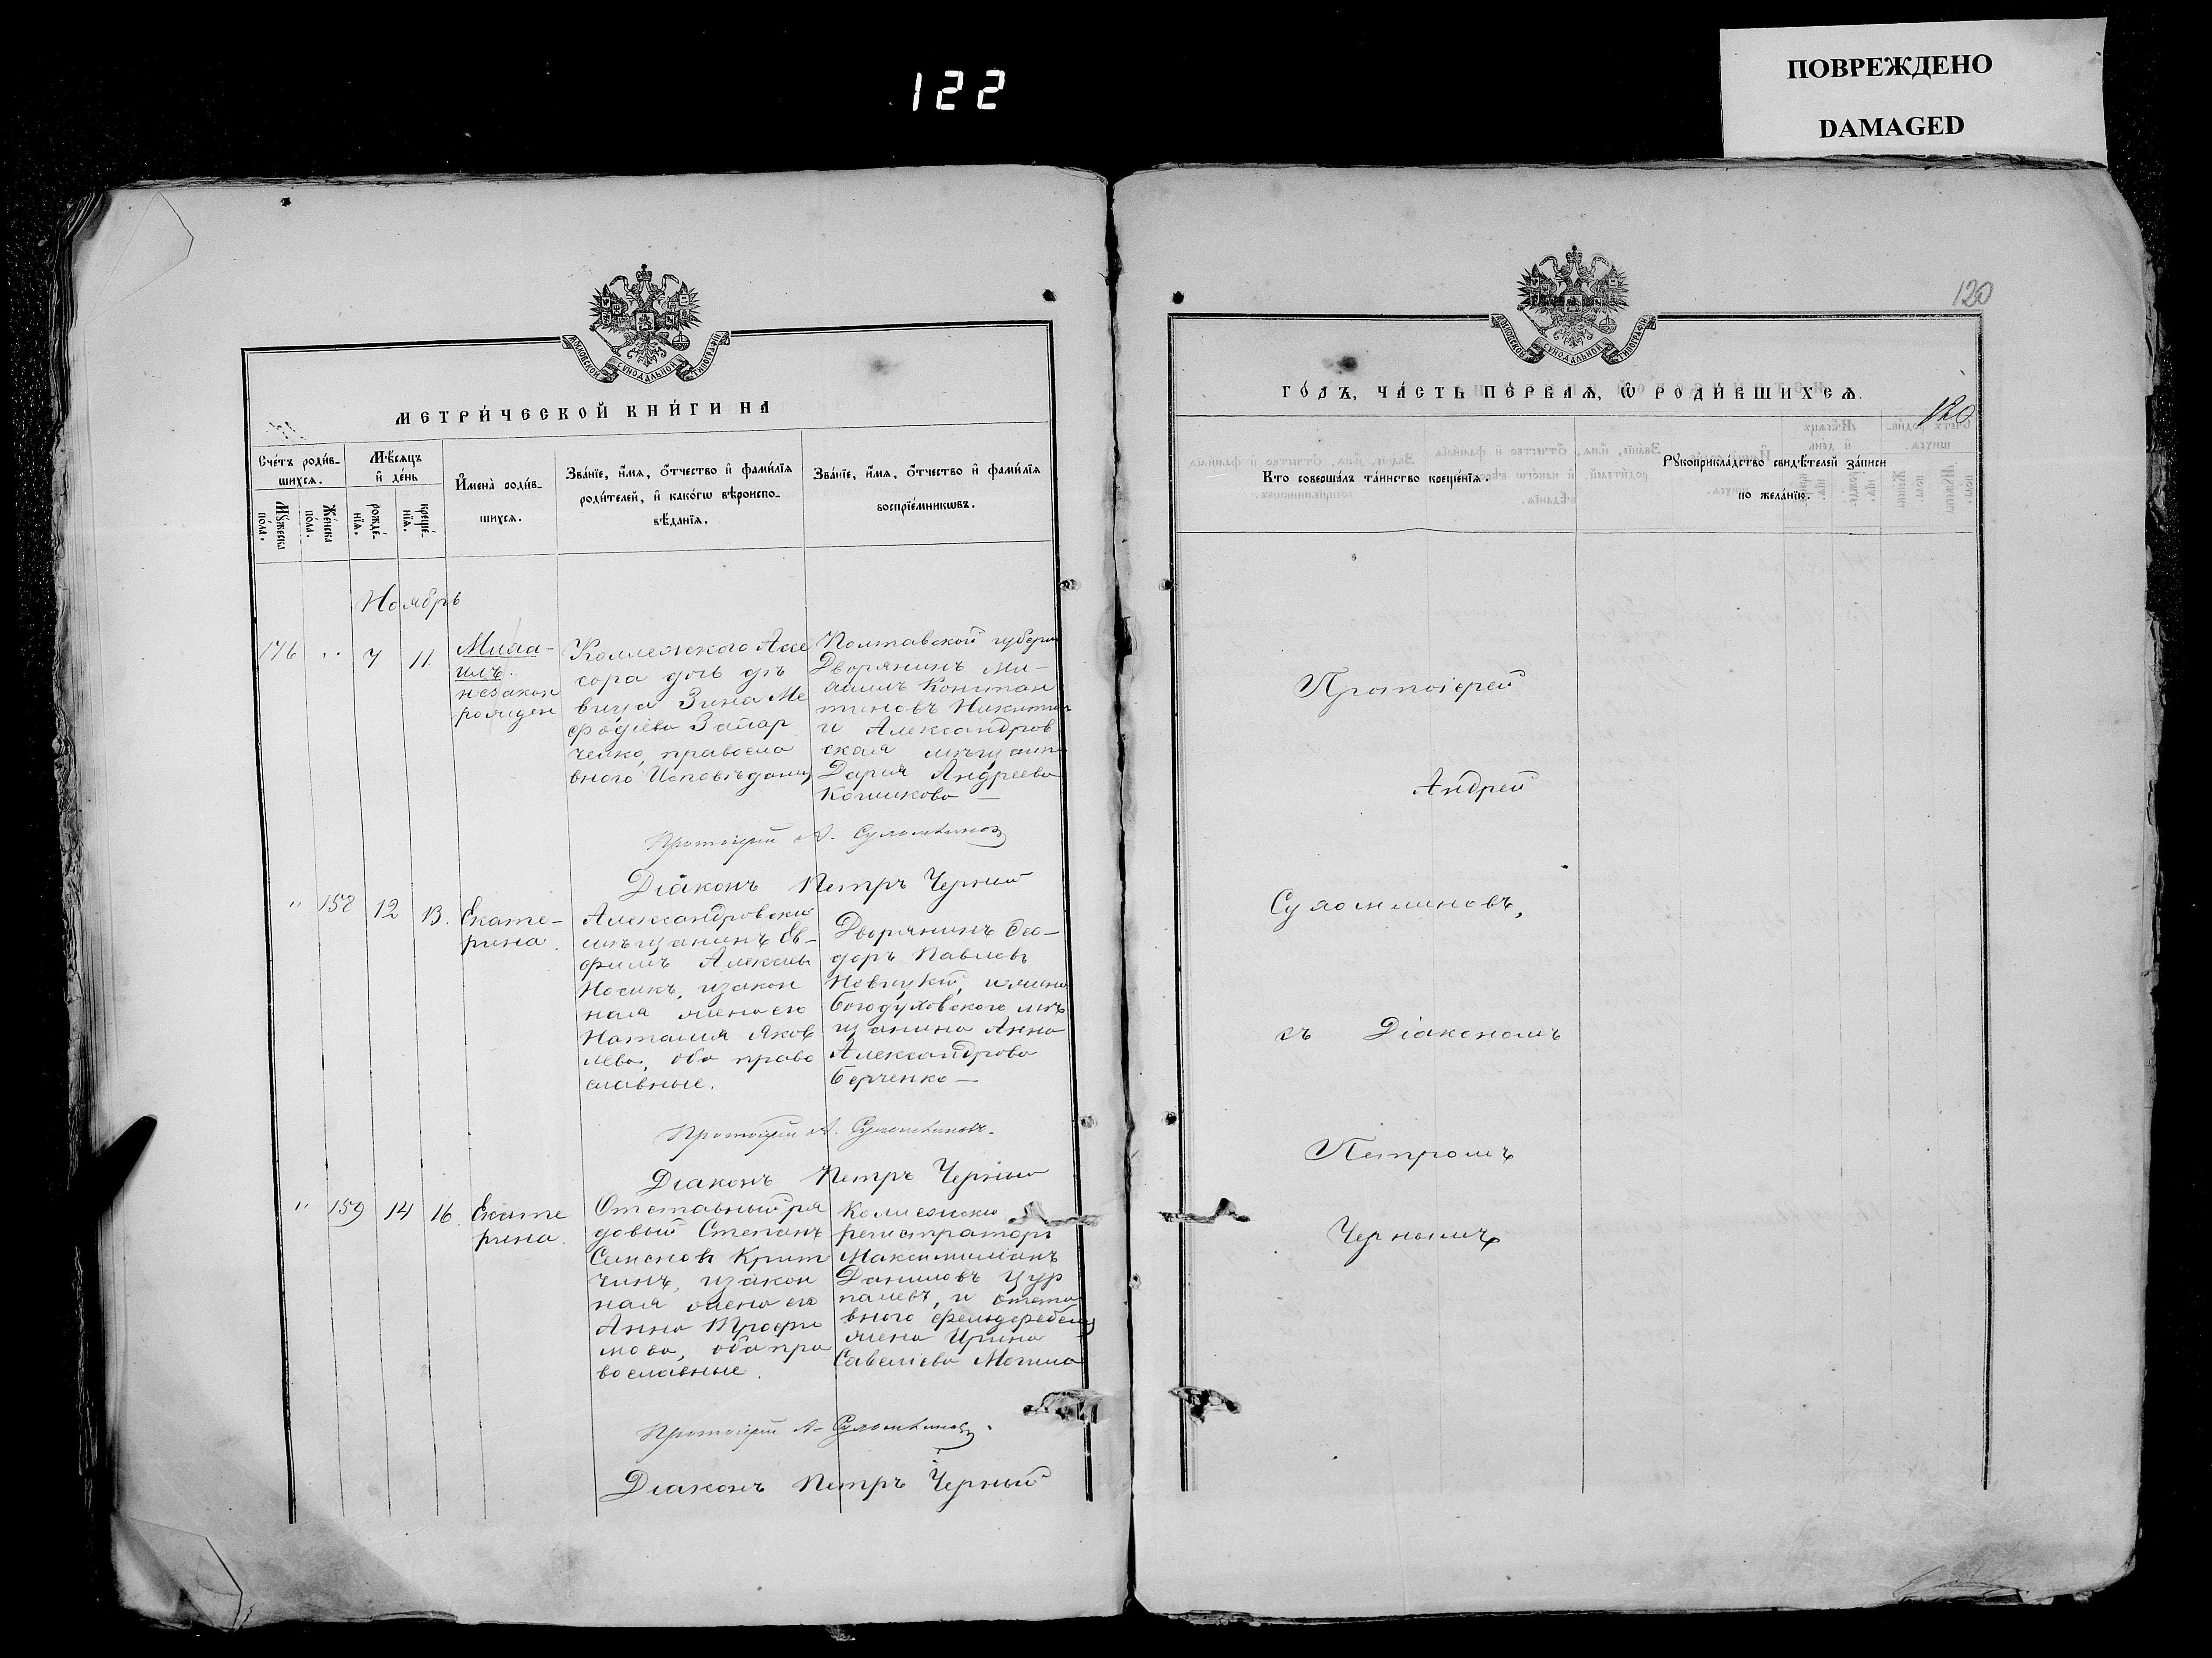 122
ПОВРЕЖДЕНО
DAMAGED
МОСКОВСКОЙ СѴНОДАЛЬНОЙ ТИПОГРАФІИ
МЕТРИ́ЧЕСКОЙ КНИ́ГИ НА
Сче́тъ роди́в-
шихся.
Мѣ́сяцъ
и҆ де́нь
И҆мена̀ роди́в-
шихся.
Зва́нїе, и҆́мя, ѻ҆́тчество и҆ фами́лїя
роди́телей, и҆ како́гѡ вѣроиспо-
вѣ́данїя.
Зва́нїе, и҆́мя, ѻ҆́тчество и҆ фами́лїя
воспрїе́мникѡвъ.
Мꙋ́жеска
по́ла.
Же́нска
по́ла.
рожде́-
нїя.
креще́-
нїя.
Ноябрь
176 " 7 11
Миха-
илъ
незакон
рожден
Коллежского Ассе
сора дочь дѣ
вица Зина Ме
фодіева
православ
вного Исповѣданія
Полтавской губерн
Дворянинъ Ми-
хаилъ Констан
тиновъ
и Александров
ская мѣщанк
Дарія Андреева
Кошикова —
Протоіерей А. Сухомлиновъ
Діаконъ Петръ Черный
" 158 12 13.
Екате-
рина.
Александровскій
мѣщанинъ Ев-
фимъ Алексѣев
Носикъ, и закон
ная жена его
Наталия Яков
лева, оба право
славные.
Дворянинъ Ѳео-
доръ Павловъ
Новицкій, и жена
богодуховского мѣ
щанина Анна
Александрова
Берченко —
Протоіерей А. Сухомлиновъ.
Діаконъ Петръ Черный
" 159 14 16
Екате
рина.
Отставный ря
довый Степанъ
Семеновъ Крит
чинъ, и закон
ная жена его
Анна Трофи
мова, оба пра
вославные.
Колежскій
регистраторъ
Максимиліанъ
Даниловъ Цур
палевъ, и отста
вного фельдфебеля
жена Ирина
Савеліева Могила
Протоіерей А. Сухомлиновъ.
Діаконъ Петръ Черный
120
МОСКОВСКОЙ СѴНОДАЛЬНОЙ ТИПОГРАФІИ
ГО́ДЪ, ЧА́СТЬ ПЕ́РВАЯ, Ѡ҆ РОДИ́ВШИХСЯ.
120
Кто̀ соверша́лъ та́инство креще́нїя.
Рꙋкоприкла́дство свидѣ́телей за́писи
по жела́нїю.
Протоіерей
Андрей
Сухомлиновъ,
съ Діакономъ
Петромъ
Чернымъ